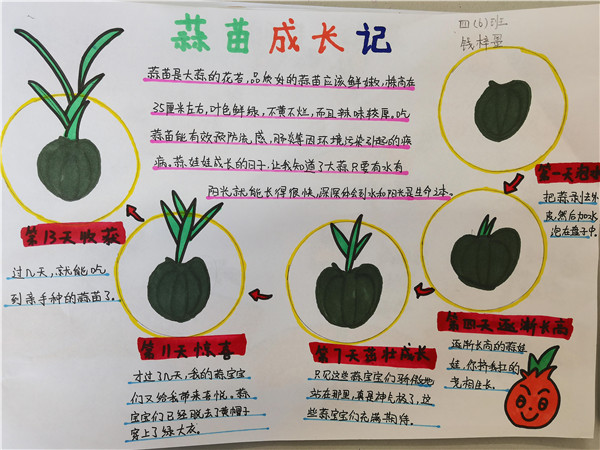 蒜苗成长记
四(6)班
钱梓墨
蒜苗是大蒜的花苔,品质好的蒜苗应该鲜嫩,株高在
35厘米左右,叶色鲜绿,不黄不烂,而且辣味较厚。吃
蒜苗能有效预防流感、肠炎等因环境污染引起的疾
病。蒜娃娃成长的日子,让我知道了大蒜只要有水有
阳光就能长得很快,深深体会到水和阳光是生命之源。
第一天泡
把蒜剥去外
皮,然后加水
泡在盘子中。
第四天逐渐长高
逐渐长高的蒜娃
娃,你持我扛的
竞相生长。
第7天茁壮成长
只见这些蒜宝宝们骄傲地
站在那里,真是神气极了,这
些蒜宝宝们充满期待。
第11天惊喜
才过了几天,我的蒜宝宝
们又给我带来喜悦。蒜
宝宝们已经脱去了黄帽子
穿上了绿大衣。
第13天收获
过几天,就能吃
到亲手种的蒜苗了。